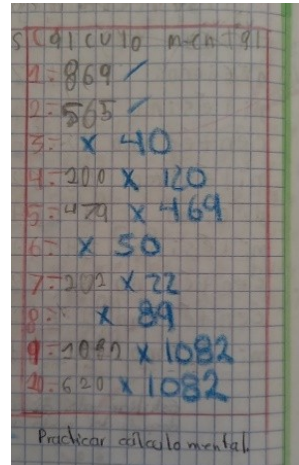 Cálculo mental
1- 869 ✓
2- 565 ✓
3- x 40
4- 200 x 120
5- 479 x 469
6- x 50
7- 202 x 22
8- x 89
9- 1082 x 1082
10- 620 x 1082
Practicar cálculo mental.